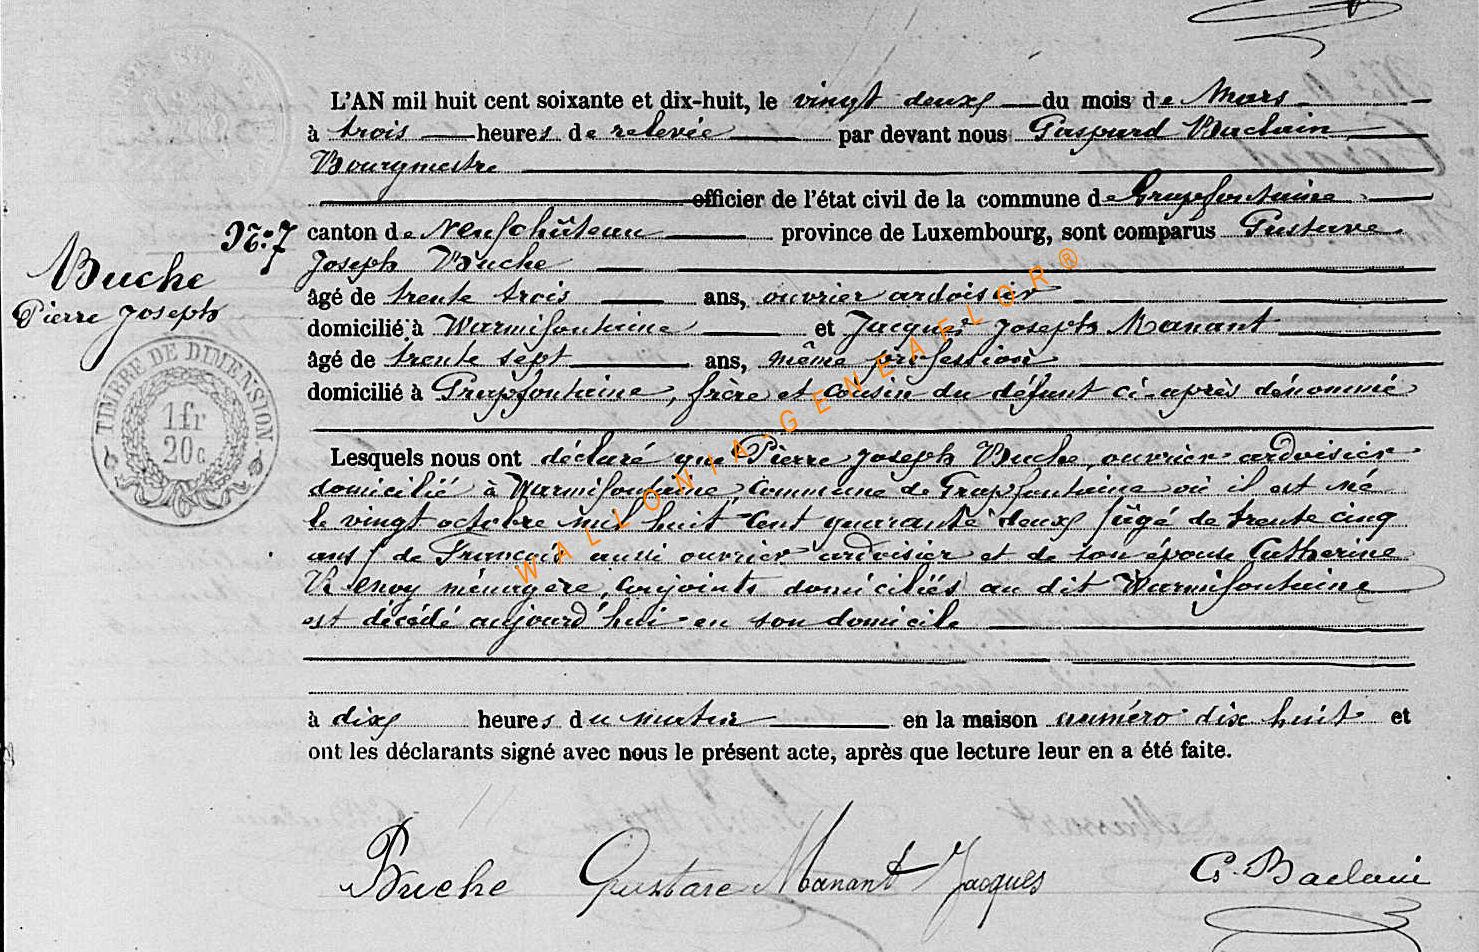 L'AN mil huit cent soixante et dix-huit, le vingt deux du mois de Mars
à trois heures de relevée par devant nous Gaspard Baclain
Bourgmestre
officier de l'état civil de la commune de Grapfontaine
canton de Neufchâteau province de Luxembourg, sont comparus Gustave
Joseph Buche
N°: 7
Buche
Pierre Joseph
âgé de trente trois ans, ouvrier ardoisier
domicilié à Warmifontaine et Jacques Joseph Manant
âgé de trente sept ans, même profession
domicilié à Grapfontaine, frère et cousin du défunt ci-après dénommé
TIMBRE DE DIMENSION
1 fr
20 c
Lesquels nous ont déclaré que Pierre Joseph Buche, ouvrier ardoisier
domicilié à Warmifontaine, commune de Grapfontaine où il est né
le vingt octobre mil huit cent quarante deux (âgé de trente cinq
ans) de François aussi ouvrier ardoisier et de son épouse Catherine
ménagère, conjoints domiciliés au dit Warmifontaine
est décédé aujourd'hui en son domicile
à dix heures du matin en la maison numéro dix huit et
ont les déclarants signé avec nous le présent acte, après que lecture leur en a été faite.
Buche Gustave Manant Jacques G. Baclain
WALLONIA-GENEAFLOR®